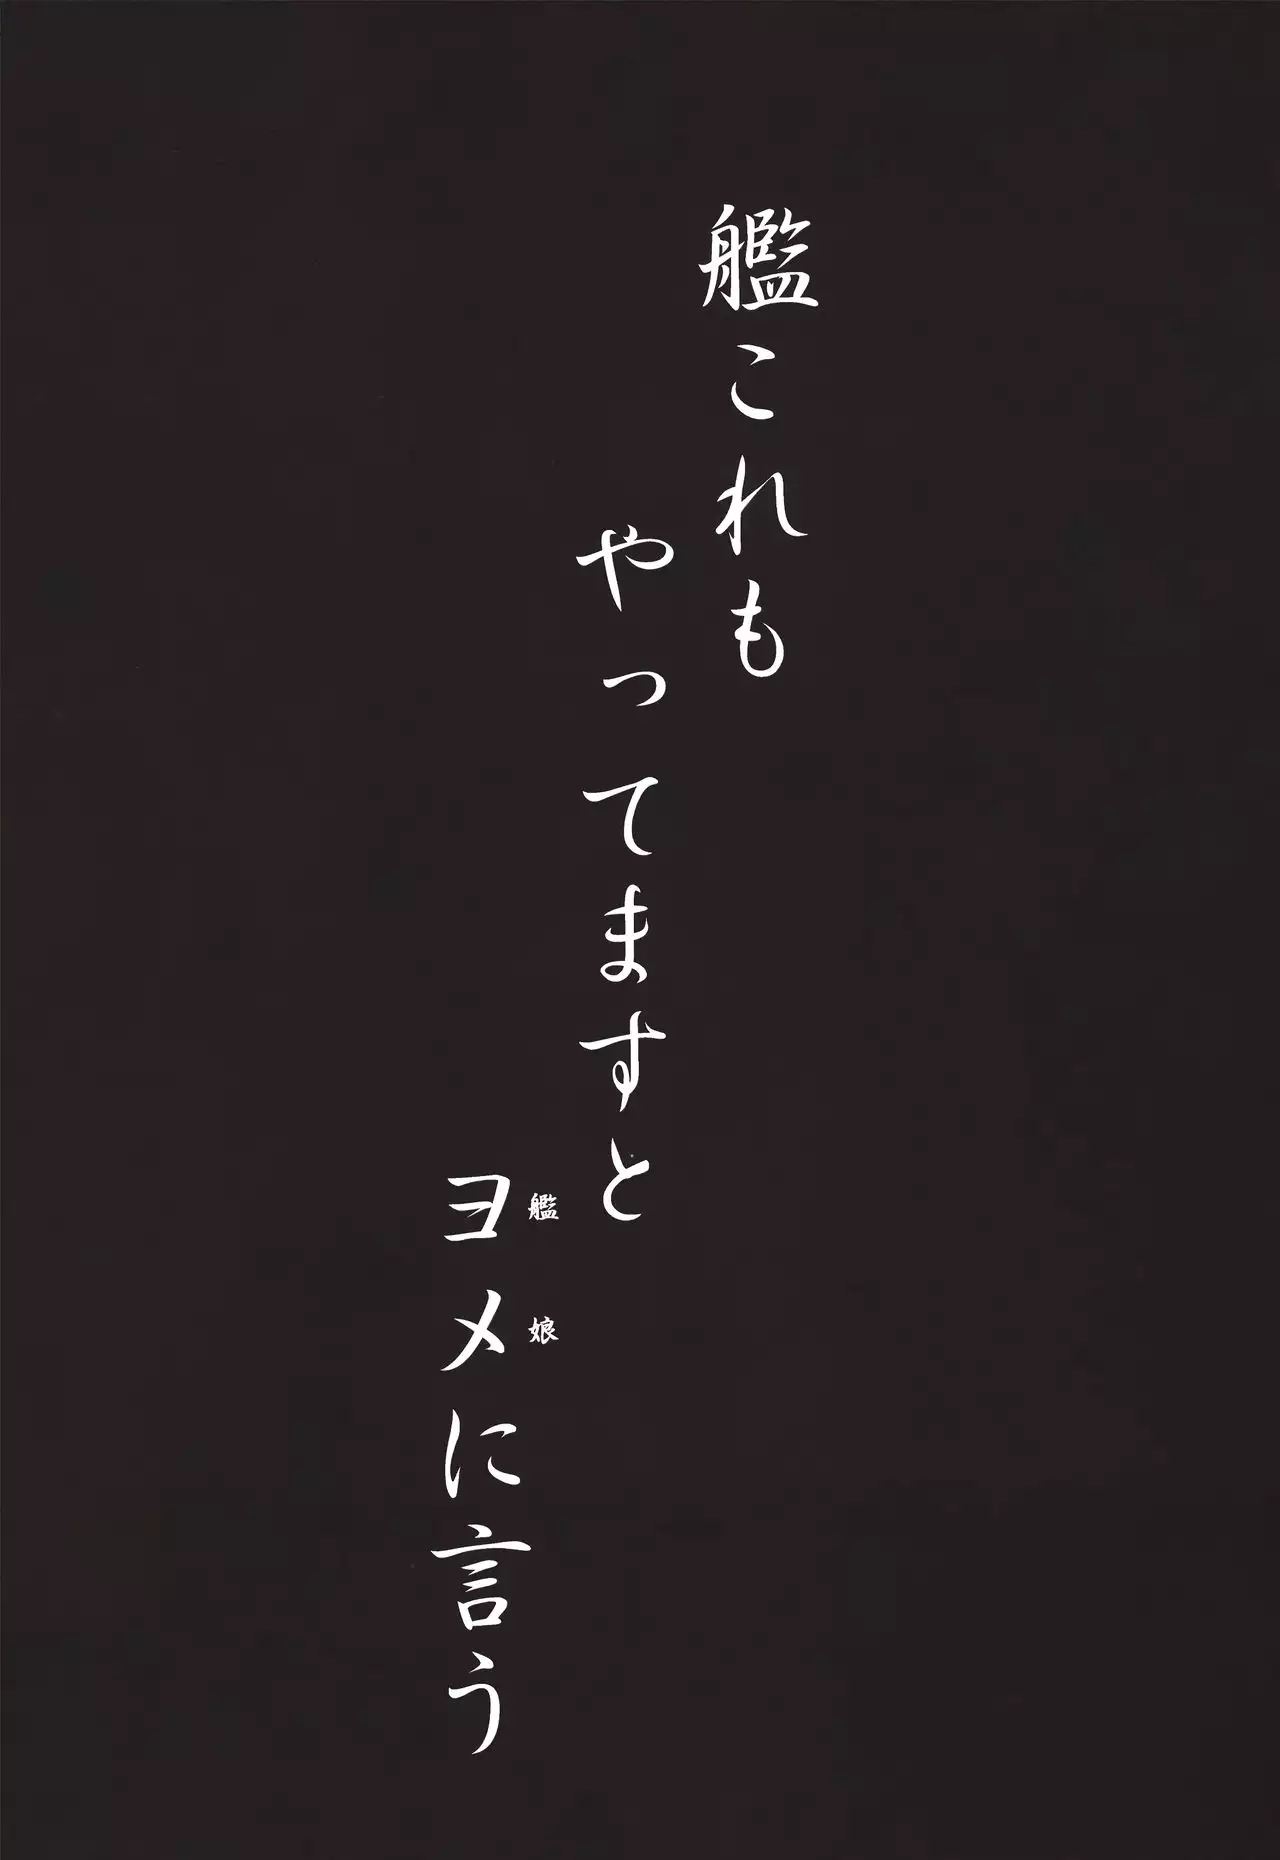 艦これも
やってますと
艦娘
ヨメに言う